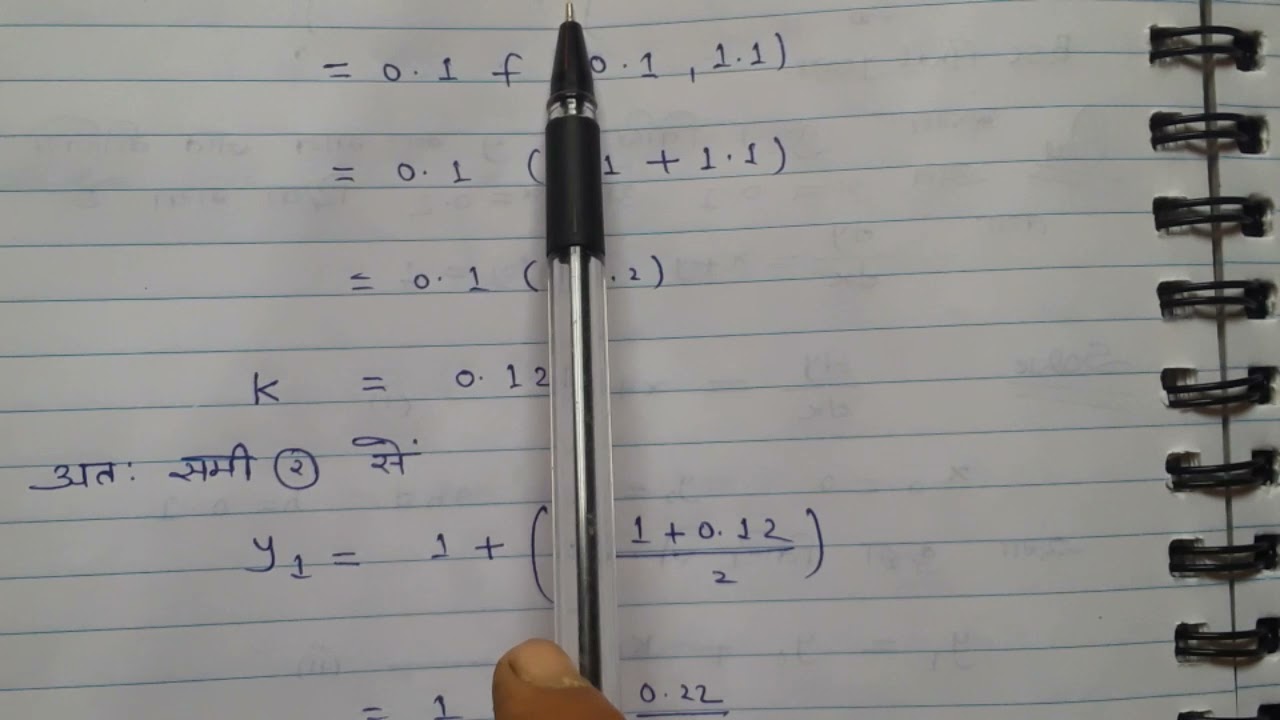 = 0.1 f 0.1 , 1.1)
= 0.1 ( 1 + 1.1)
= 0.1 ( .2)
k = 0.12
अतः समी ② से
y₁ = 1 + ( 1 + 0.12 / 2 )
= 1 0.22